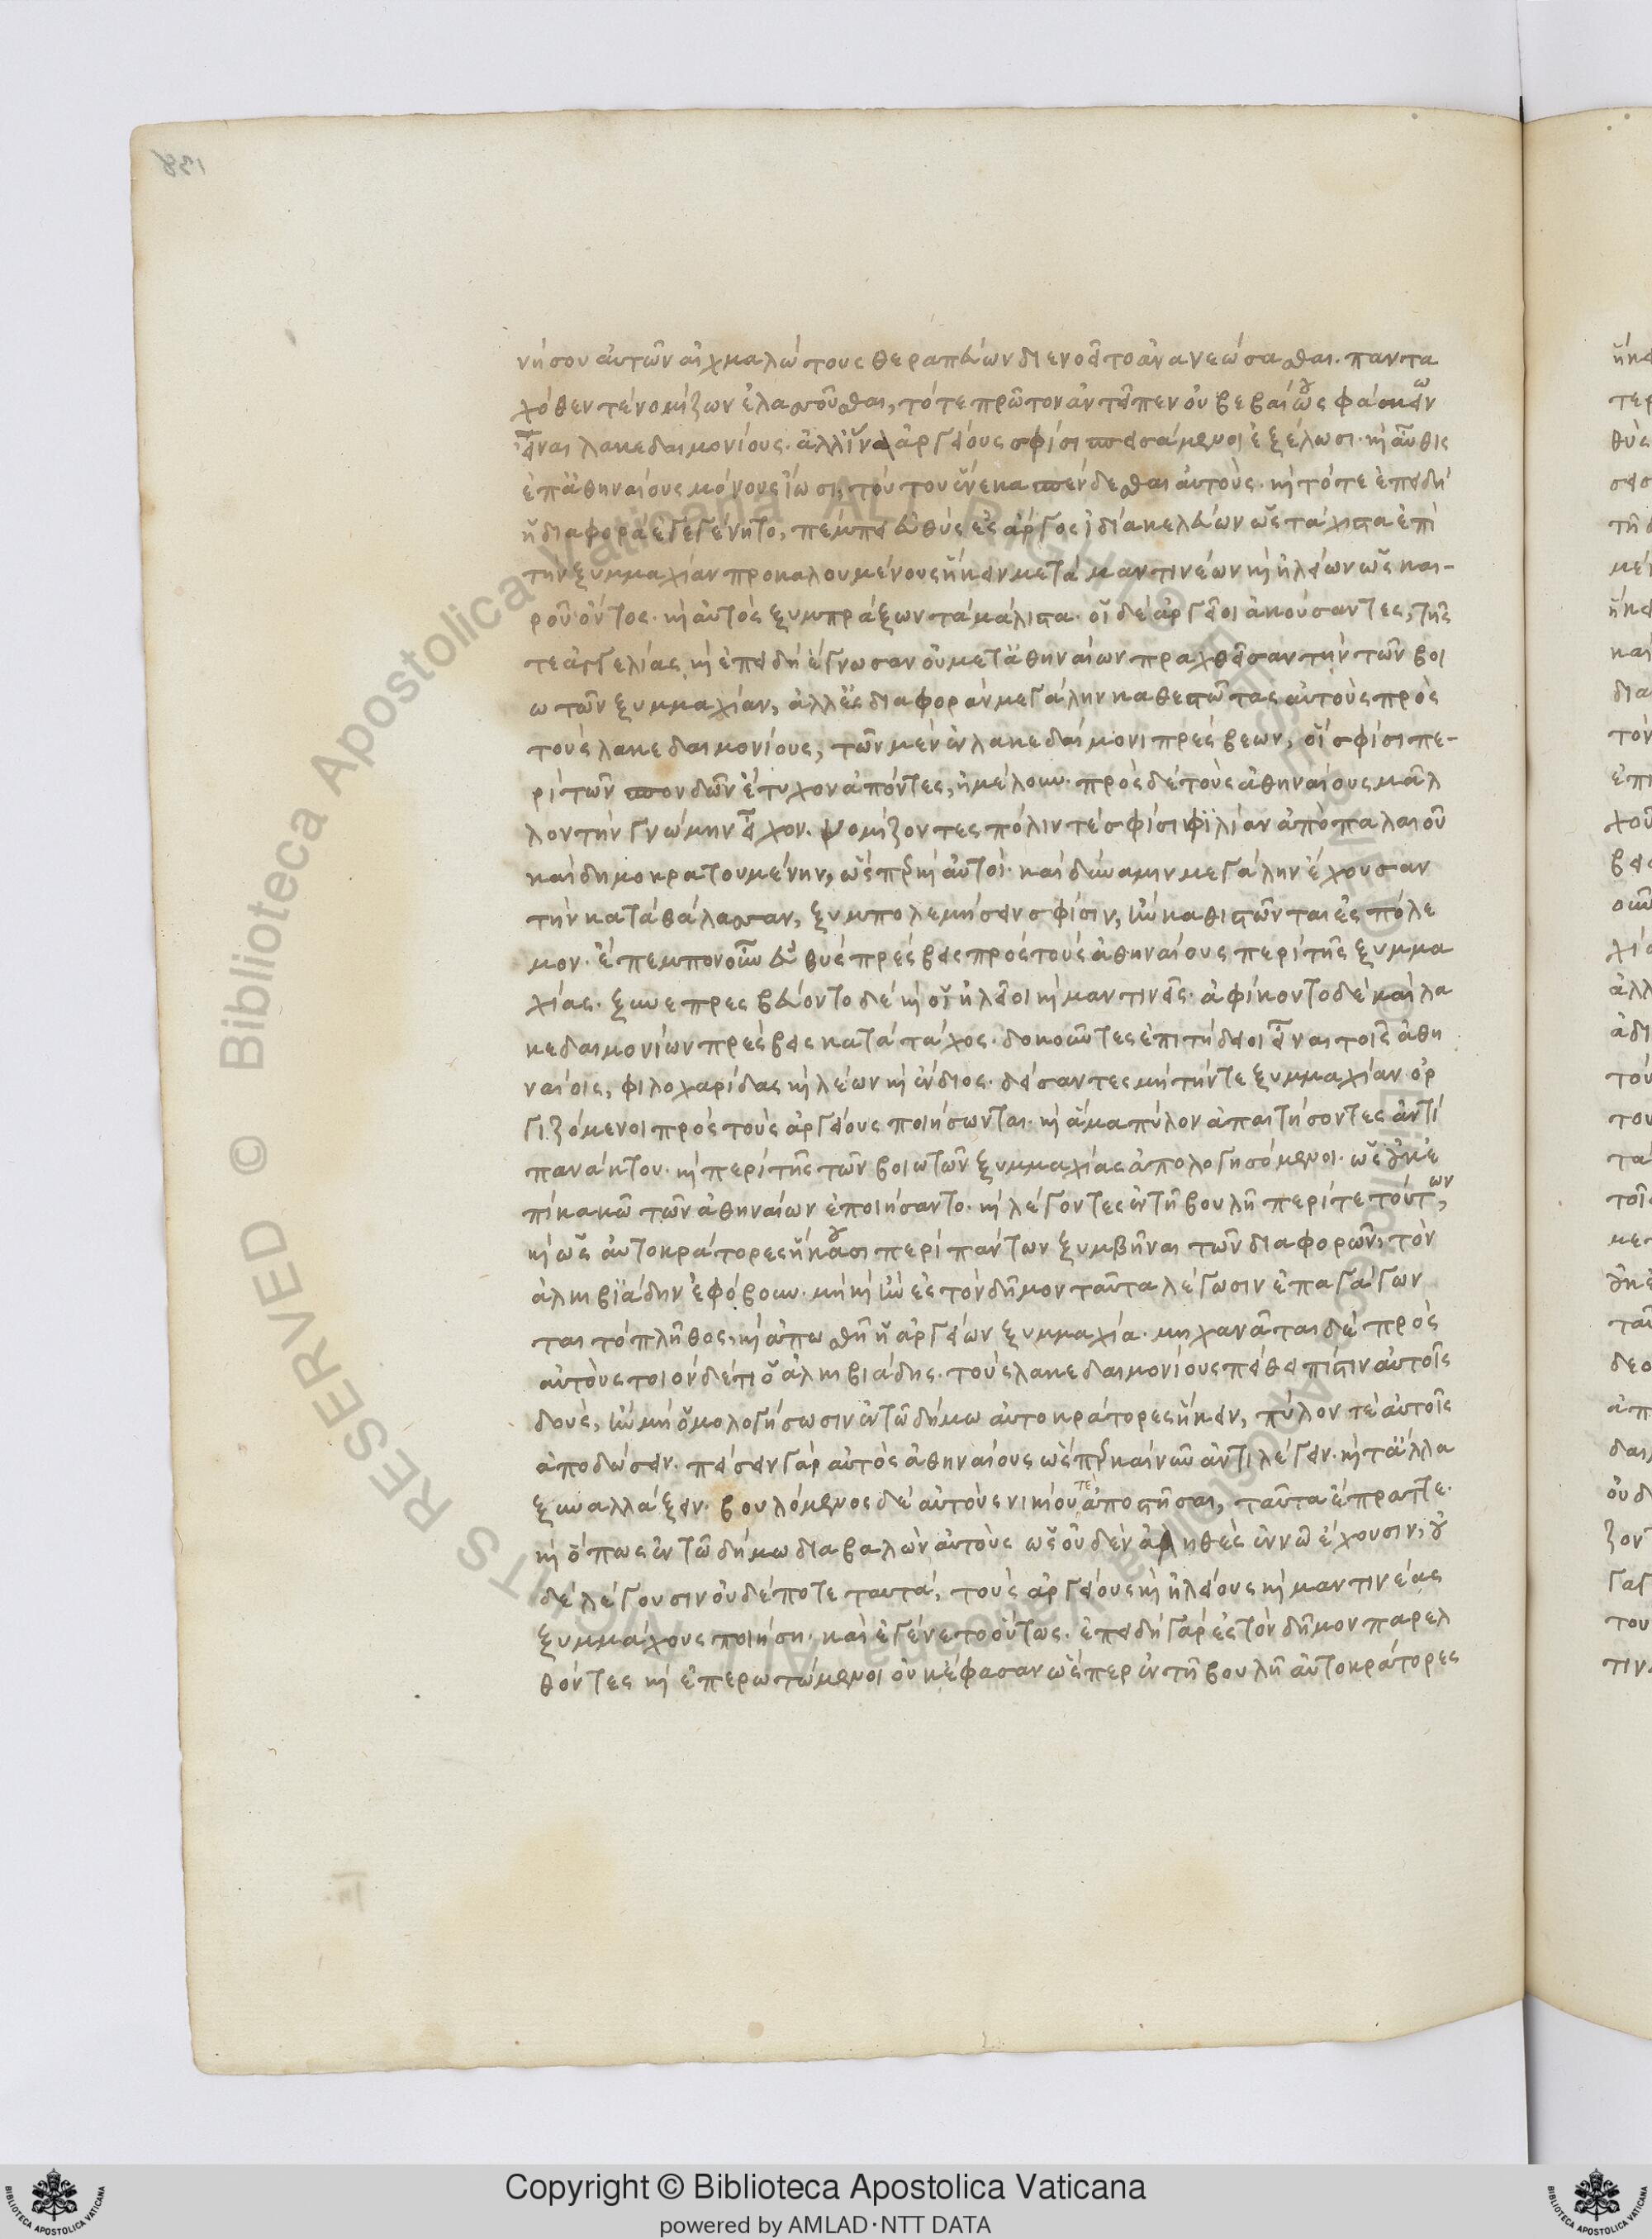 νήσου αὐτῶν αἰχμαλώτους θεραπεύων διενοεῖτο ἀνανεώσασθαι. παντα
χόθεν τὲ νομίζων ἐλασσοῦσθαι, τότε πρῶτον ἀντεῖπεν οὐ βεβαίους φάσκων
εἶναι λακεδαιμονίους. ἀλλ' ἵνα ἀργείους σφίσι σπεισάμενοι ἐξέλωσι. καὶ αὖθις
ἐπ' ἀθηναίους μόνους ἴωσι, τούτου ἕνεκα σπένδεσθαι αὐτούς. καὶ τότε ἐπειδὴ
ἡ διαφορὰ ἐγεγένητο, πέμπει εὐθὺς ἐς ἄργος ἰδίᾳ κελεύων ὡς τάχιστα ἐπὶ
τὴν ξυμμαχίαν προκαλουμένους ἥκειν μετὰ μαντινέων καὶ ἠλείων ὡς και-
ροῦ ὄντος. καὶ αὐτὸς ξυμπράξων τὰ μάλιστα. οἱ δὲ ἀργεῖοι ἀκούσαντες, τῆς
τε ἀγγελίας καὶ ἐπειδὴ ἔγνωσαν οὐ μετ' ἀθηναίων πραχθεῖσαν τὴν τῶν βοι
ωτῶν ξυμμαχίαν, ἀλλ' ἐς διαφορὰν μεγάλην καθεστῶτας αὐτοὺς πρὸς
τοὺς λακεδαιμονίους, τῶν μὲν ἐν λακεδαίμονι πρέσβεων, οἵ σφίσι πε-
ρὶ τῶν σπονδῶν ἔτυχον ἀπόντες, ἠμέλουν. πρὸς δὲ τοὺς ἀθηναίους μᾶλ
λον τὴν γνώμην εἶχον. νομίζοντες πόλιν τέ σφίσι φιλίαν ἀπὸ παλαιοῦ
καὶ δημοκρατουμένην, ὥσπερ καὶ αὐτοί. καὶ δύναμιν μεγάλην ἔχουσαν
τὴν κατὰ θάλασσαν, ξυμπολεμήσειν σφίσιν, ἢν καθιστῶνται ἐς πόλε
μον. ἔπεμπον οὖν εὐθὺς πρέσβεις πρὸς τοὺς ἀθηναίους περὶ τῆς ξυμμα
χίας. ξυνεπρεσβεύοντο δὲ καὶ οἱ ἠλεῖοι καὶ μαντινεῖς. ἀφίκοντο δὲ καὶ λα
κεδαιμονίων πρέσβεις κατὰ τάχος. δοκοῦντες ἐπιτήδειοι εἶναι τοῖς ἀθη
ναίοις, φιλοχαρίδας καὶ λέων καὶ ἔνδιος. δείσαντες μὴ τήν τε ξυμμαχίαν ὀρ
γιζόμενοι πρὸς τοὺς ἀργείους ποιήσωνται. καὶ ἅμα πύλον ἀπαιτήσοντες ἀντὶ
πανάκτου. καὶ περὶ τῆς τῶν βοιωτῶν ξυμμαχίας ἀπολογησόμενοι. ὡς οὐκ ἐ
πὶ κακῶ τῶν ἀθηναίων ἐποιήσαντο. καὶ λέγοντες ἐν τῆ βουλῆ περί τε τούτων,
καὶ ὡς αὐτοκράτορες ἥκουσι περὶ πάντων ξυμβῆναι τῶν διαφορῶν, τὸν
ἀλκιβιάδην ἐφόβουν. μὴ καὶ ἢν ἐς τὸν δῆμον ταῦτα λέγωσιν ἐπαγάγων
ται τὸ πλῆθος, καὶ ἀπωσθῆ ἡ ἀργείων ξυμμαχία. μηχανᾶται δὲ πρὸς
αὐτοὺς τοιόνδέ τι ὁ ἀλκιβιάδης. τοὺς λακεδαιμονίους πείθει πίστιν αὐτοῖς
δούς, ἢν μὴ ὁμολογήσωσιν ἐν τῶ δήμω αὐτοκράτορες ἥκειν, πύλον τὲ αὐτοῖς
ἀποδώσειν. πείσειν γὰρ αὐτὸς ἀθηναίους ὥσπερ καὶ νῦν ἀντιλέγειν. καὶ τἄλλα
ξυναλλάξειν. βουλόμενος δὲ αὐτοὺς νικίου τε ἀποστῆσαι, ταῦτα ἔπραττε.
καὶ ὅπως ἐν τῶ δήμω διαβαλὼν αὐτοὺς ὡς οὐδὲν ἀληθὲς ἐν νῶ ἔχουσιν, οὐ
δὲ λέγουσιν οὐδέποτε ταυτά, τοὺς ἀργείους καὶ ἠλείους καὶ μαντινέας
ξυμμάχους ποιήση. καὶ ἐγένετο οὕτως. ἐπειδὴ γὰρ ἐς τὸν δῆμον παρελ
θόντες καὶ ἐπερωτώμενοι οὐκ ἔφασαν ὥσπερ ἐν τῆ βουλῆ αὐτοκράτορες
Copyright © Biblioteca Apostolica Vaticana
powered by AMLAD·NTT DATA